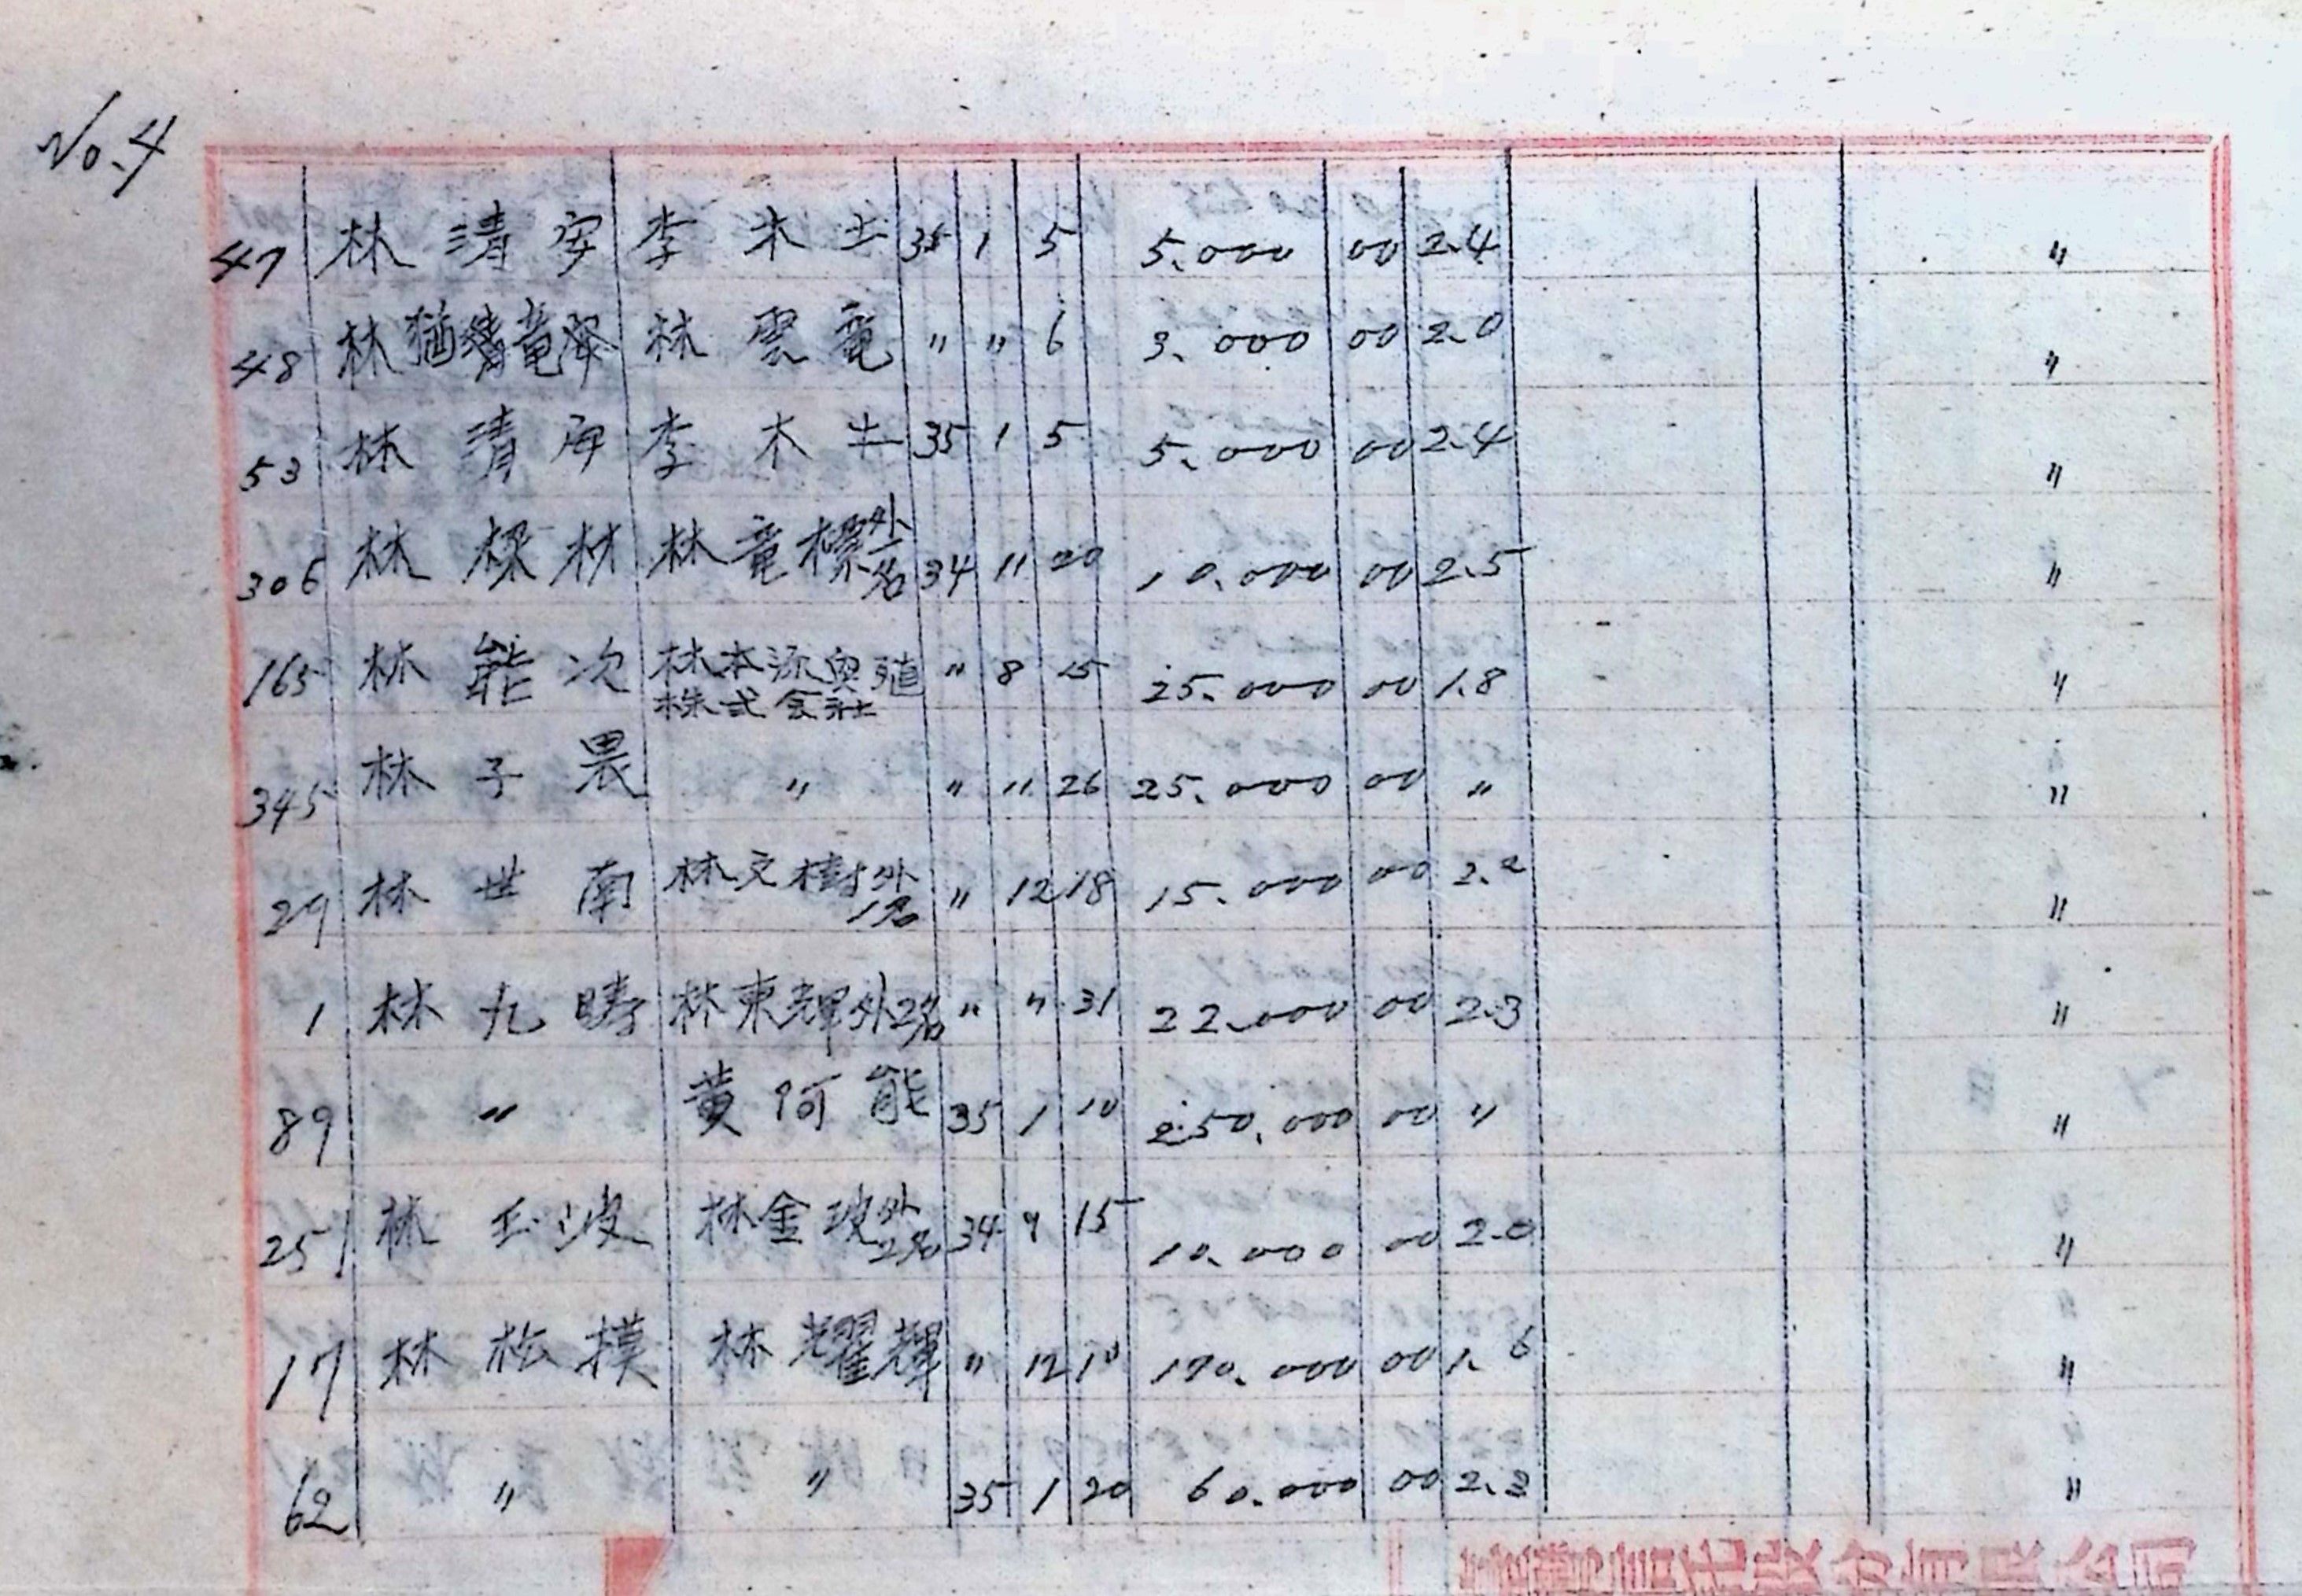 No.4
47 林清安 李木土 35 1 5 5.000 00 2.4 〃
48 林 林雲竜 〃 〃 6 3.000 00 2.0 〃
53 林清 李木土 35 1 5 5.000 00 2.4 〃
306 林樑材 林竜標外一名 34 11 20 10.000 00 2.5 〃
165 林能次 林本源興殖株式会社 〃 8 25.000 00 1.8 〃
345 林子畏 〃 〃 11 26 25.000 00 〃 〃
29 林世南 林文樹外1名 〃 12 18 15.000 00 2.2 〃
1 林九疇 林東輝外2名 〃 〃 31 22.000 00 2.3 〃
89 〃 黄阿能 35 1 10 250.000 00 〃 〃
251 林玉波 林金波外2名 34 9 15 10.000 00 2.0 〃
17 林松模 林耀輝 〃 12 10 170.000 00 1.6 〃
62 〃 〃 35 1 20 60.000 00 2.3 〃
股份有限公司